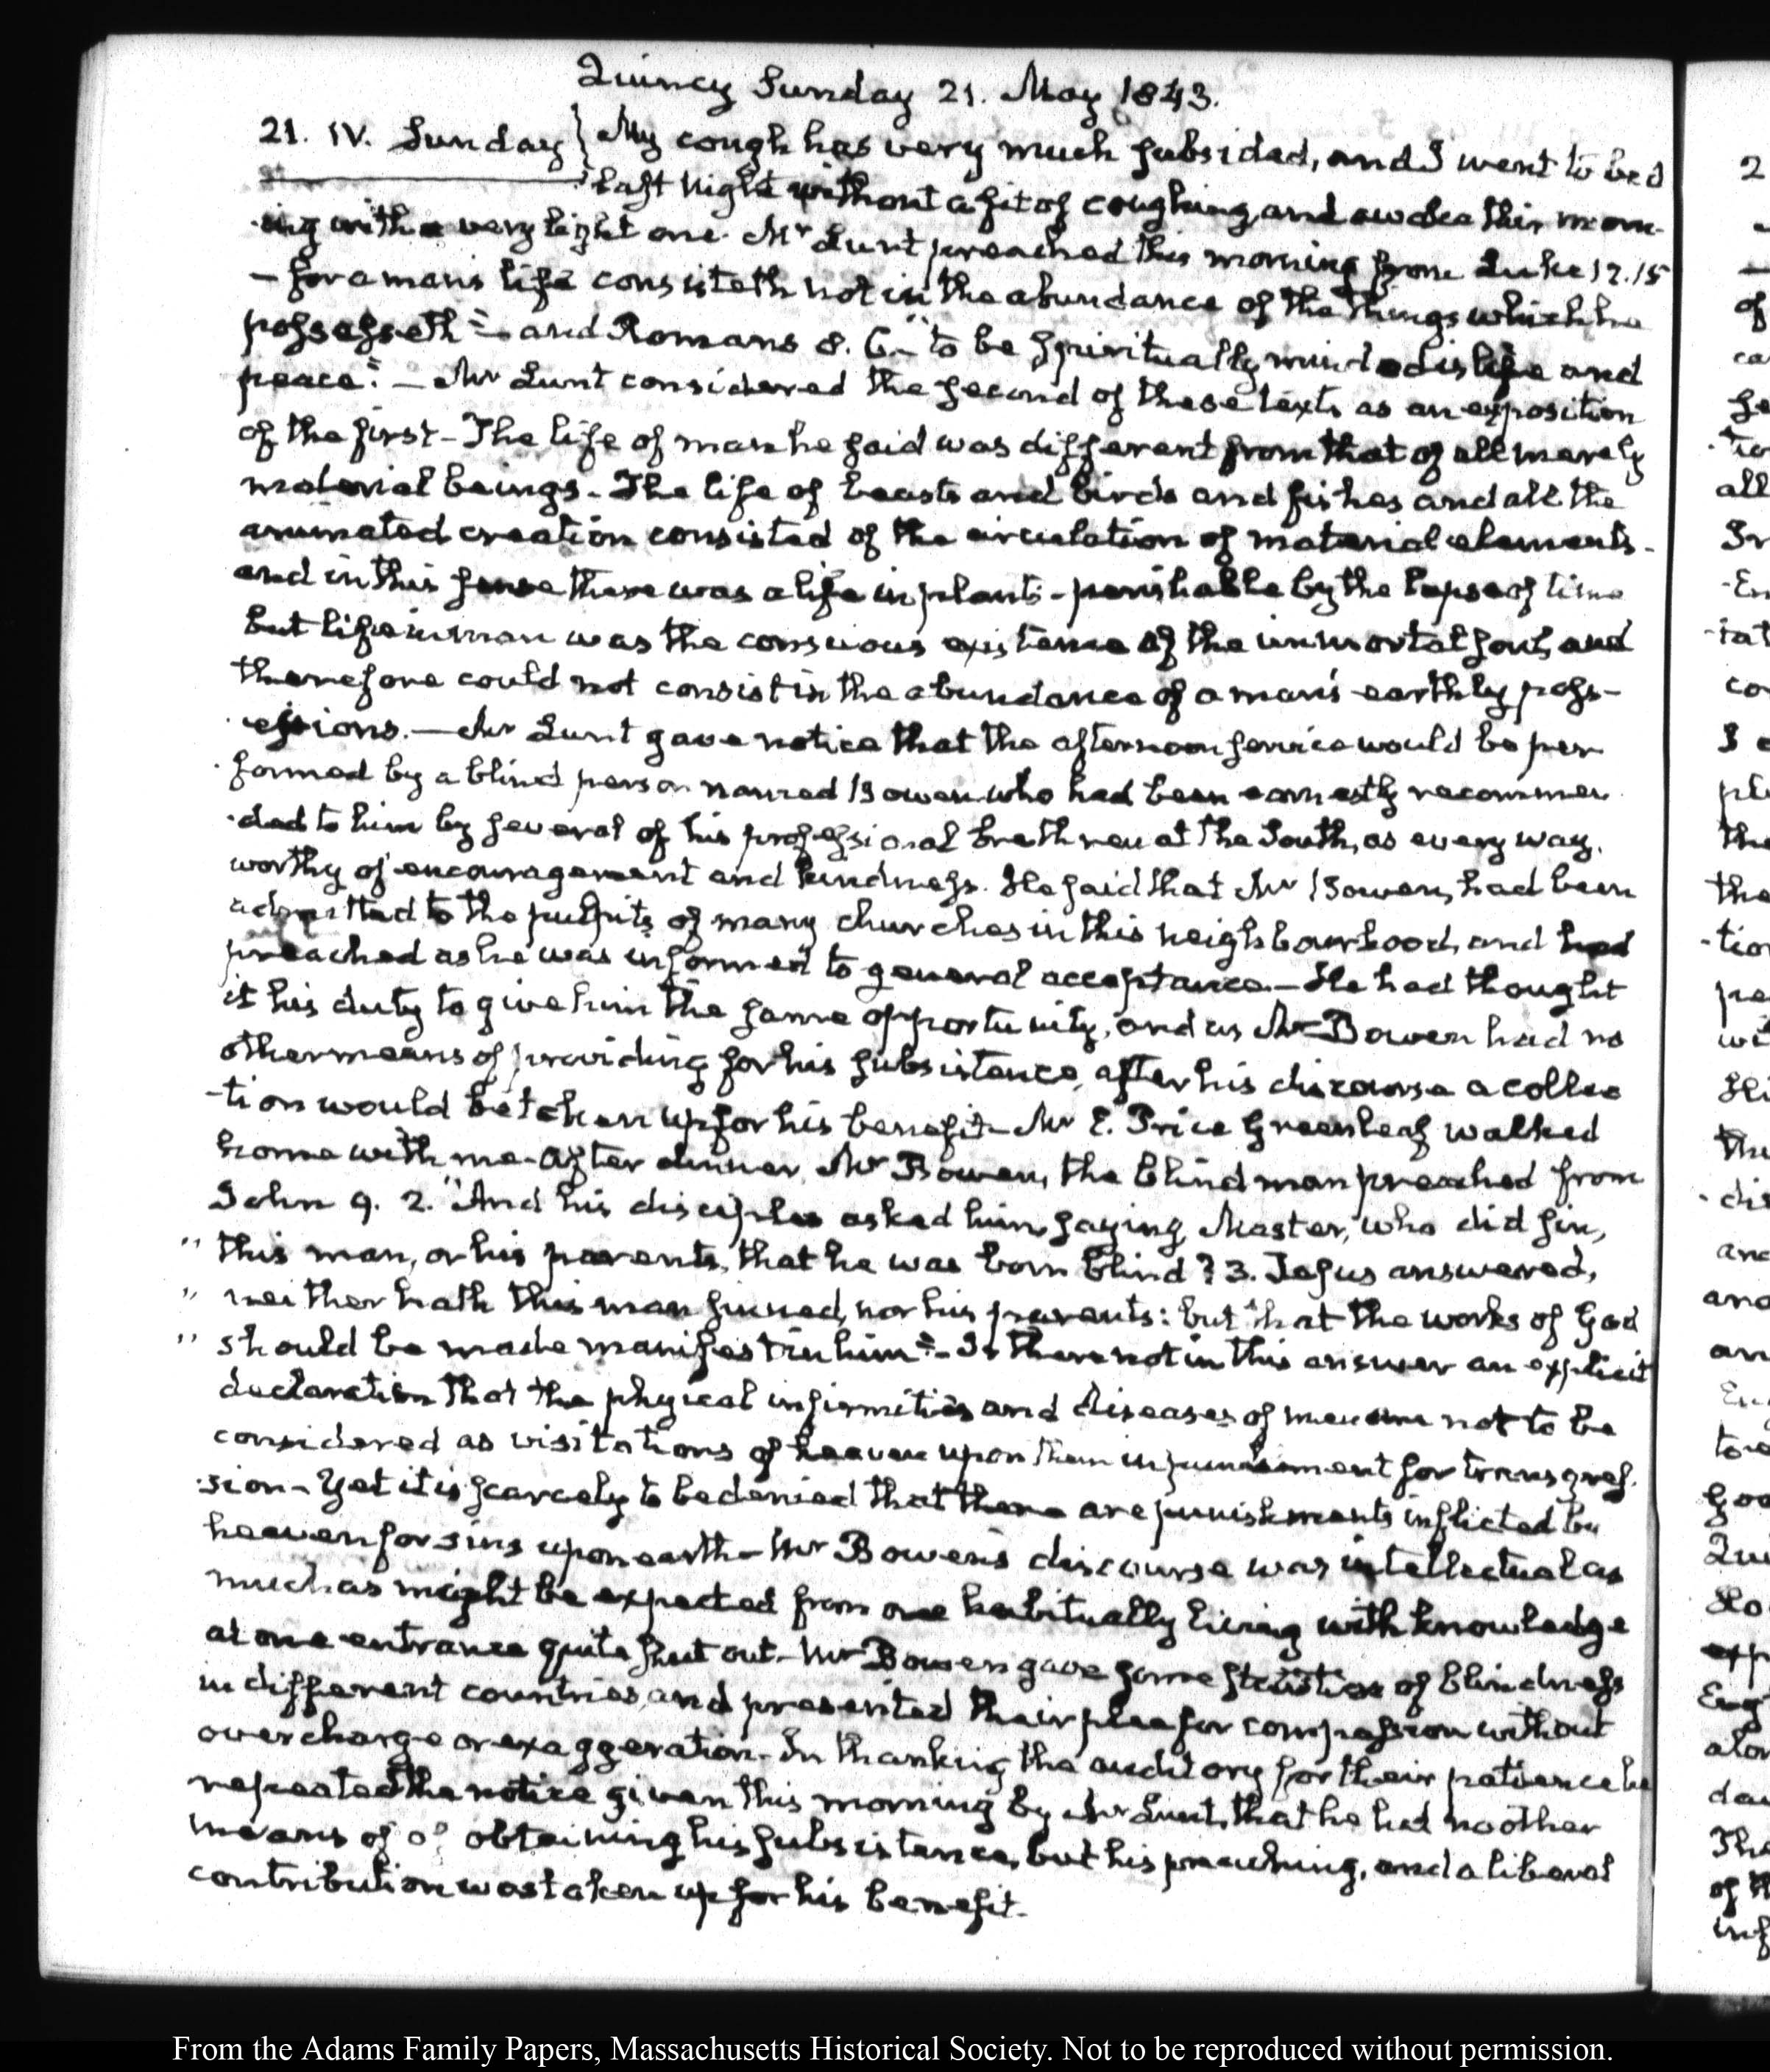 Quincy Sunday 21. May 1843.
21. IV. Sunday } My cough has very much subsided, and I went to bed
last night without a fit of coughing, and awoke this morn-
ing with a very light one. Mr Lunt preached this morning from Luke 12.15
— for a man's life consisteth not in the abundance of the things which he
possesseth" — and Romans 8. 6. "to be spiritually minded is life and
peace." — Mr Lunt considered the second of these texts as an exposition
of the first — The life of man he said was different from that of all merely
material beings. The life of beasts and birds and fishes and all the
animated creation consisted of the circulation of material elements.
and in this sense there was a life in plants - perishable by the lapse of time
but life in man was the conscious existence of the immortal soul, and
therefore could not consist in the abundance of a man's earthly poss-
essions. — Mr Lunt gave notice that the afternoon service would be per
formed by a blind person named Bowen who had been earnestly recommen
ded to him by several of his professional brethren at the South, as every way.
worthy of encouragement and kindness. He said that Mr Bowen, had been
admitted to the pulpits of many churches in this neighbourhood, and had
preached as he was informed to general acceptance. — He had thought
it his duty to give him the same opportunity, and as Mr Bowen had no
other means of providing for his subsistence, after his discourse a collec
-tion would be taken up for his benefit — Mr E. Price Greenleaf walked
home with me. After dinner, Mr Bowen, the blind man preached from
John 9. 2. "And his disciples asked him, saying, Master, who did sin,
" this man, or his parents, that he was born blind? 3. Jesus answered,
" neither hath this man sinned, nor his parents: but that the works of God
" should be made manifest in him" — Is there not in this answer an explicit
declaration that the physical infirmities and diseases of men are not to be
considered as visitations of heaven upon them in punishment for transgres-
sion — Yet it is scarcely to be denied that there are punishments inflicted by
heaven for sins upon earth — Mr Bowen's discourse was intellectual as
much as might be expected from one habitually living with knowledge
at one entrance quite shut out. — Mr Bowen gave some statistics of blindness
in different countries, and presented their plea for compassion without
overcharge or exaggeration. In thanking the auditory for their patience he
repeated the notice given this morning by Mr Lunt, that he had no other
means of of obtaining his subsistence, but his preaching, and a liberal
contribution was taken up for his benefit.
From the Adams Family Papers, Massachusetts Historical Society. Not to be reproduced without permission.